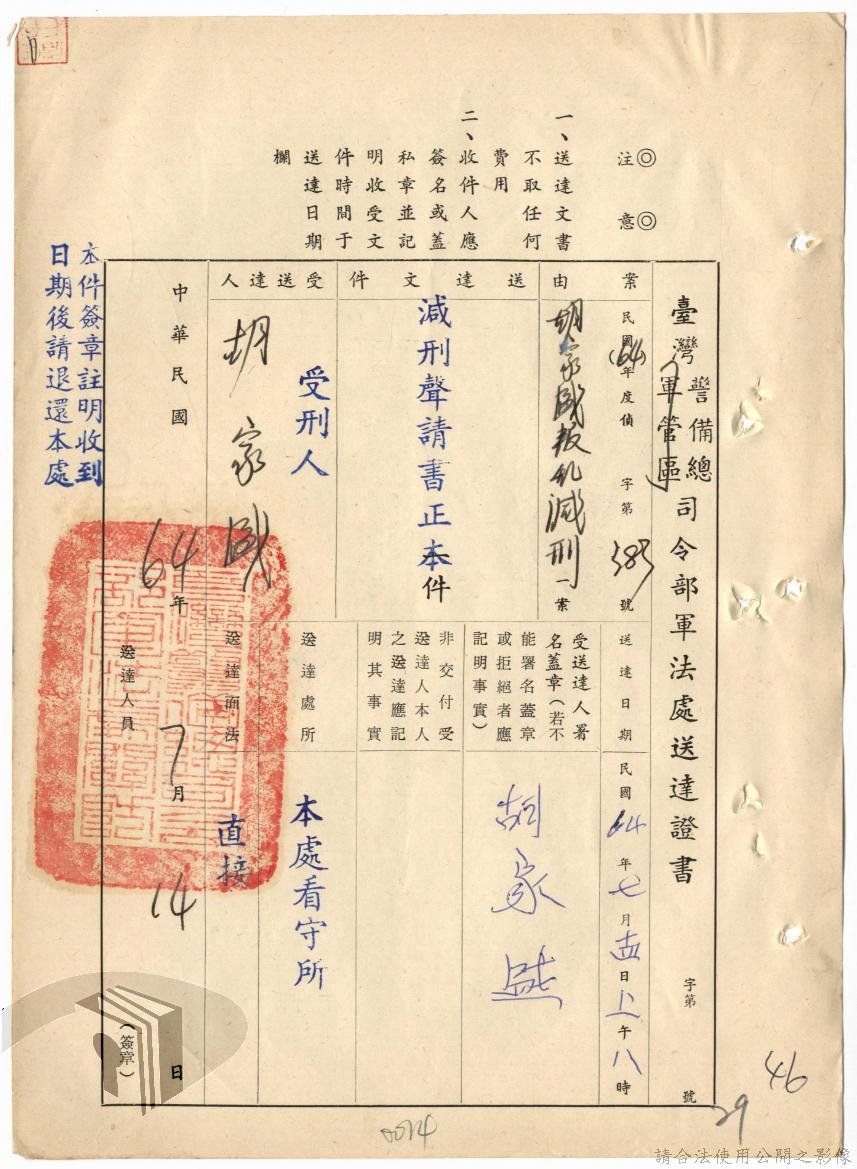 ◎注意◎
一、送達文書
不取任何
費用
二、收件人應
簽名或蓋
私章並記
明收受文
件時間于
送達日期
欄
臺灣警備總軍管區司令部軍法處送達證書
字第 號
案由
民國(64)年度偵 字第 號
胡家盛叛亂減刑一案
送達文件
減刑聲請書正本件
受送達人
受刑人
胡家盛
送達日期
民國64年七月 日上午八時
受送達人署
名蓋章(若不
能署名蓋章
或拒絕者應
記明事實)
胡家盛
非交付受
送達人本人
之送達應記
明其事實
送達處所
本處看守所
送達面法
直接
中華民國64年7月14日
送達人員
(簽章)
本件簽章註明收到
日期後請退還本處
46
29
0014
請合法使用公開之影像